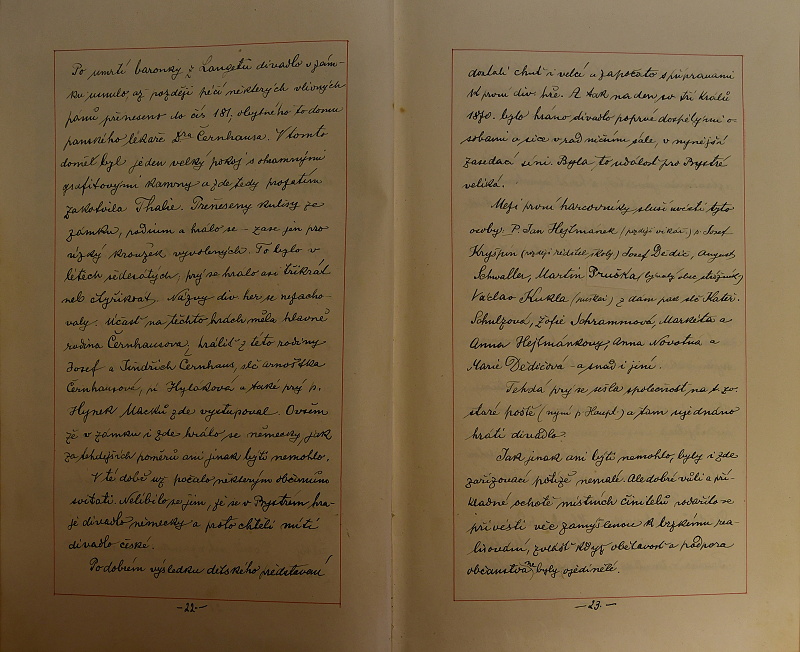 Po úmrtí baronky z Langetů divadlo v zám-
ku usnulo až později péčí některých vlivných
pánů přeneseno do čís. 181, obytného to domu
panského lékaře Dra Černhausa. V tomto
domě byl jeden velký pokoj s ohromnými
grafitovými kamny a zde tedy prozatím
zakotvila Thalie. Přeneseny kulisy ze
zámku, podium a hrálo se – zase jen pro
úzký kroužek vyvolených. To bylo v
létech šedesátých, prý se hrálo asi třikrát
neb čtyřikrát. Názvy div. her se nezacho-
valy. Účast na těchto hrách měla hlavně
rodina Černhausova, hráli z této rodiny
Josef a Jindřich Černhaus, slč. Arnoštka
Černhausová, pí Hyláková a také prý p.
Hynek Macků zde vystupoval. Ovšem
že v zámku i zde hrálo se německy, jak
za tehdejších poměrů ani jinak býti nemohlo.
V té době už počalo některým občanům
svítati. Nelíbilo se jim, že se v Bystrém hra-
je divadlo německy a proto chtěli míti
divadlo české.
Po dobrém výsledku dětského představení
–22–
dostali chuť i velcí a započato s přípravami
k první div. hře. A tak na den sv. Tří Králů
1870. bylo hráno divadlo poprvé dospělými o-
sobami a sice v radničním sále, v nynější
zasedací síni. Byla to událost pro Bystré
veliká.
Mezi první harcovníky sluší uvésti tyto
osoby: P. Jan Hejtmánek (později vikář) p. Josef
Kryšpín (později ředitel školy) Josef Dědič, August
Schwaller, Martin Pruška
Václav Kukla z dam pak slč. Kateř.
Schulzová, Žofie Schrammová, Markéta a
Anna Hejtmánkovy, Anna Novotná a
Marie Dědičová – a snad i jiní.
Tehdá prý se sešla společnost na t. zv.
staré poště (nyní p. Haupt) a tam ujednáno
hráti divadlo.
Jak jinak ani býti nemohlo, byly i zde
zařizovací potíže nemalé. Ale dobré vůli a pří-
kladné ochotě místních činitelů podařilo se
přivésti věc zamýšlenou k brzkému rea-
lisování, zvlášť když obětavost a podpora
občanstva ne byly ojedinělé.
–23–